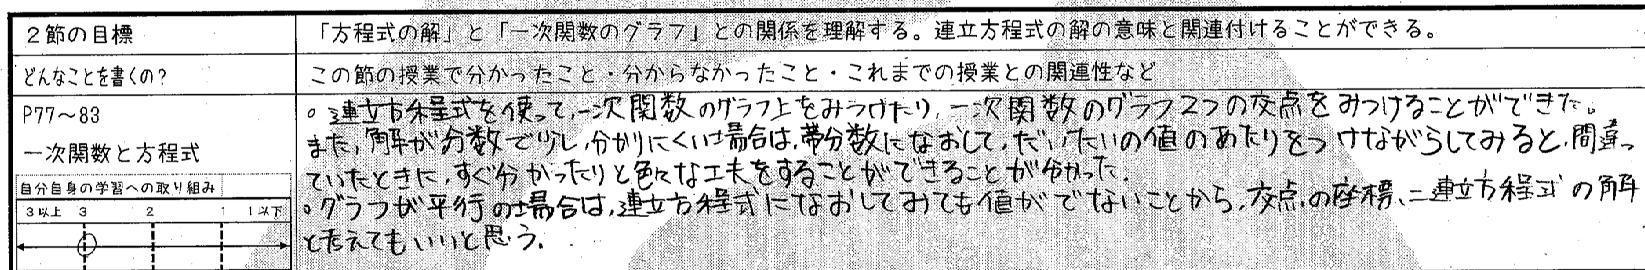 2節の目標
「方程式の解」と「一次関数のグラフ」との関係を理解する。連立方程式の解の意味と関連付けることができる。
どんなことを書くの?
この節の授業で分かったこと・分からなかったこと・これまでの授業との関連性など
P77~83
一次関数と方程式
自分自身の学習への取り組み
3以上 3 2 1 1以下
○連立方程式を使って、一次関数のグラフ上をみつけたり、一次関数のグラフ2つの交点をみつけることができた。
また、解が分数で少し、分かりにくい場合は、帯分数になおして、だいたいの値のあたりをつけながらしてみると、間違っ
ていたときに、すぐ分かったりと色々な工夫をすることができることが分かった。
○グラフが平行の場合は、連立方程式になおしてみても値がでないことから、交点の座標、=連立方程式の解
と考えてもいいと思う。